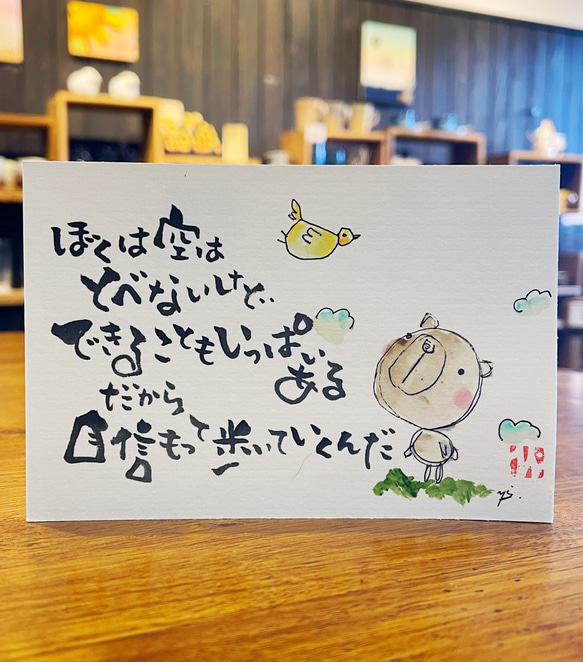 ぼくは空は
とべないけど..
できることもいっぱい
ある
だから
自信もって歩いていくんだ